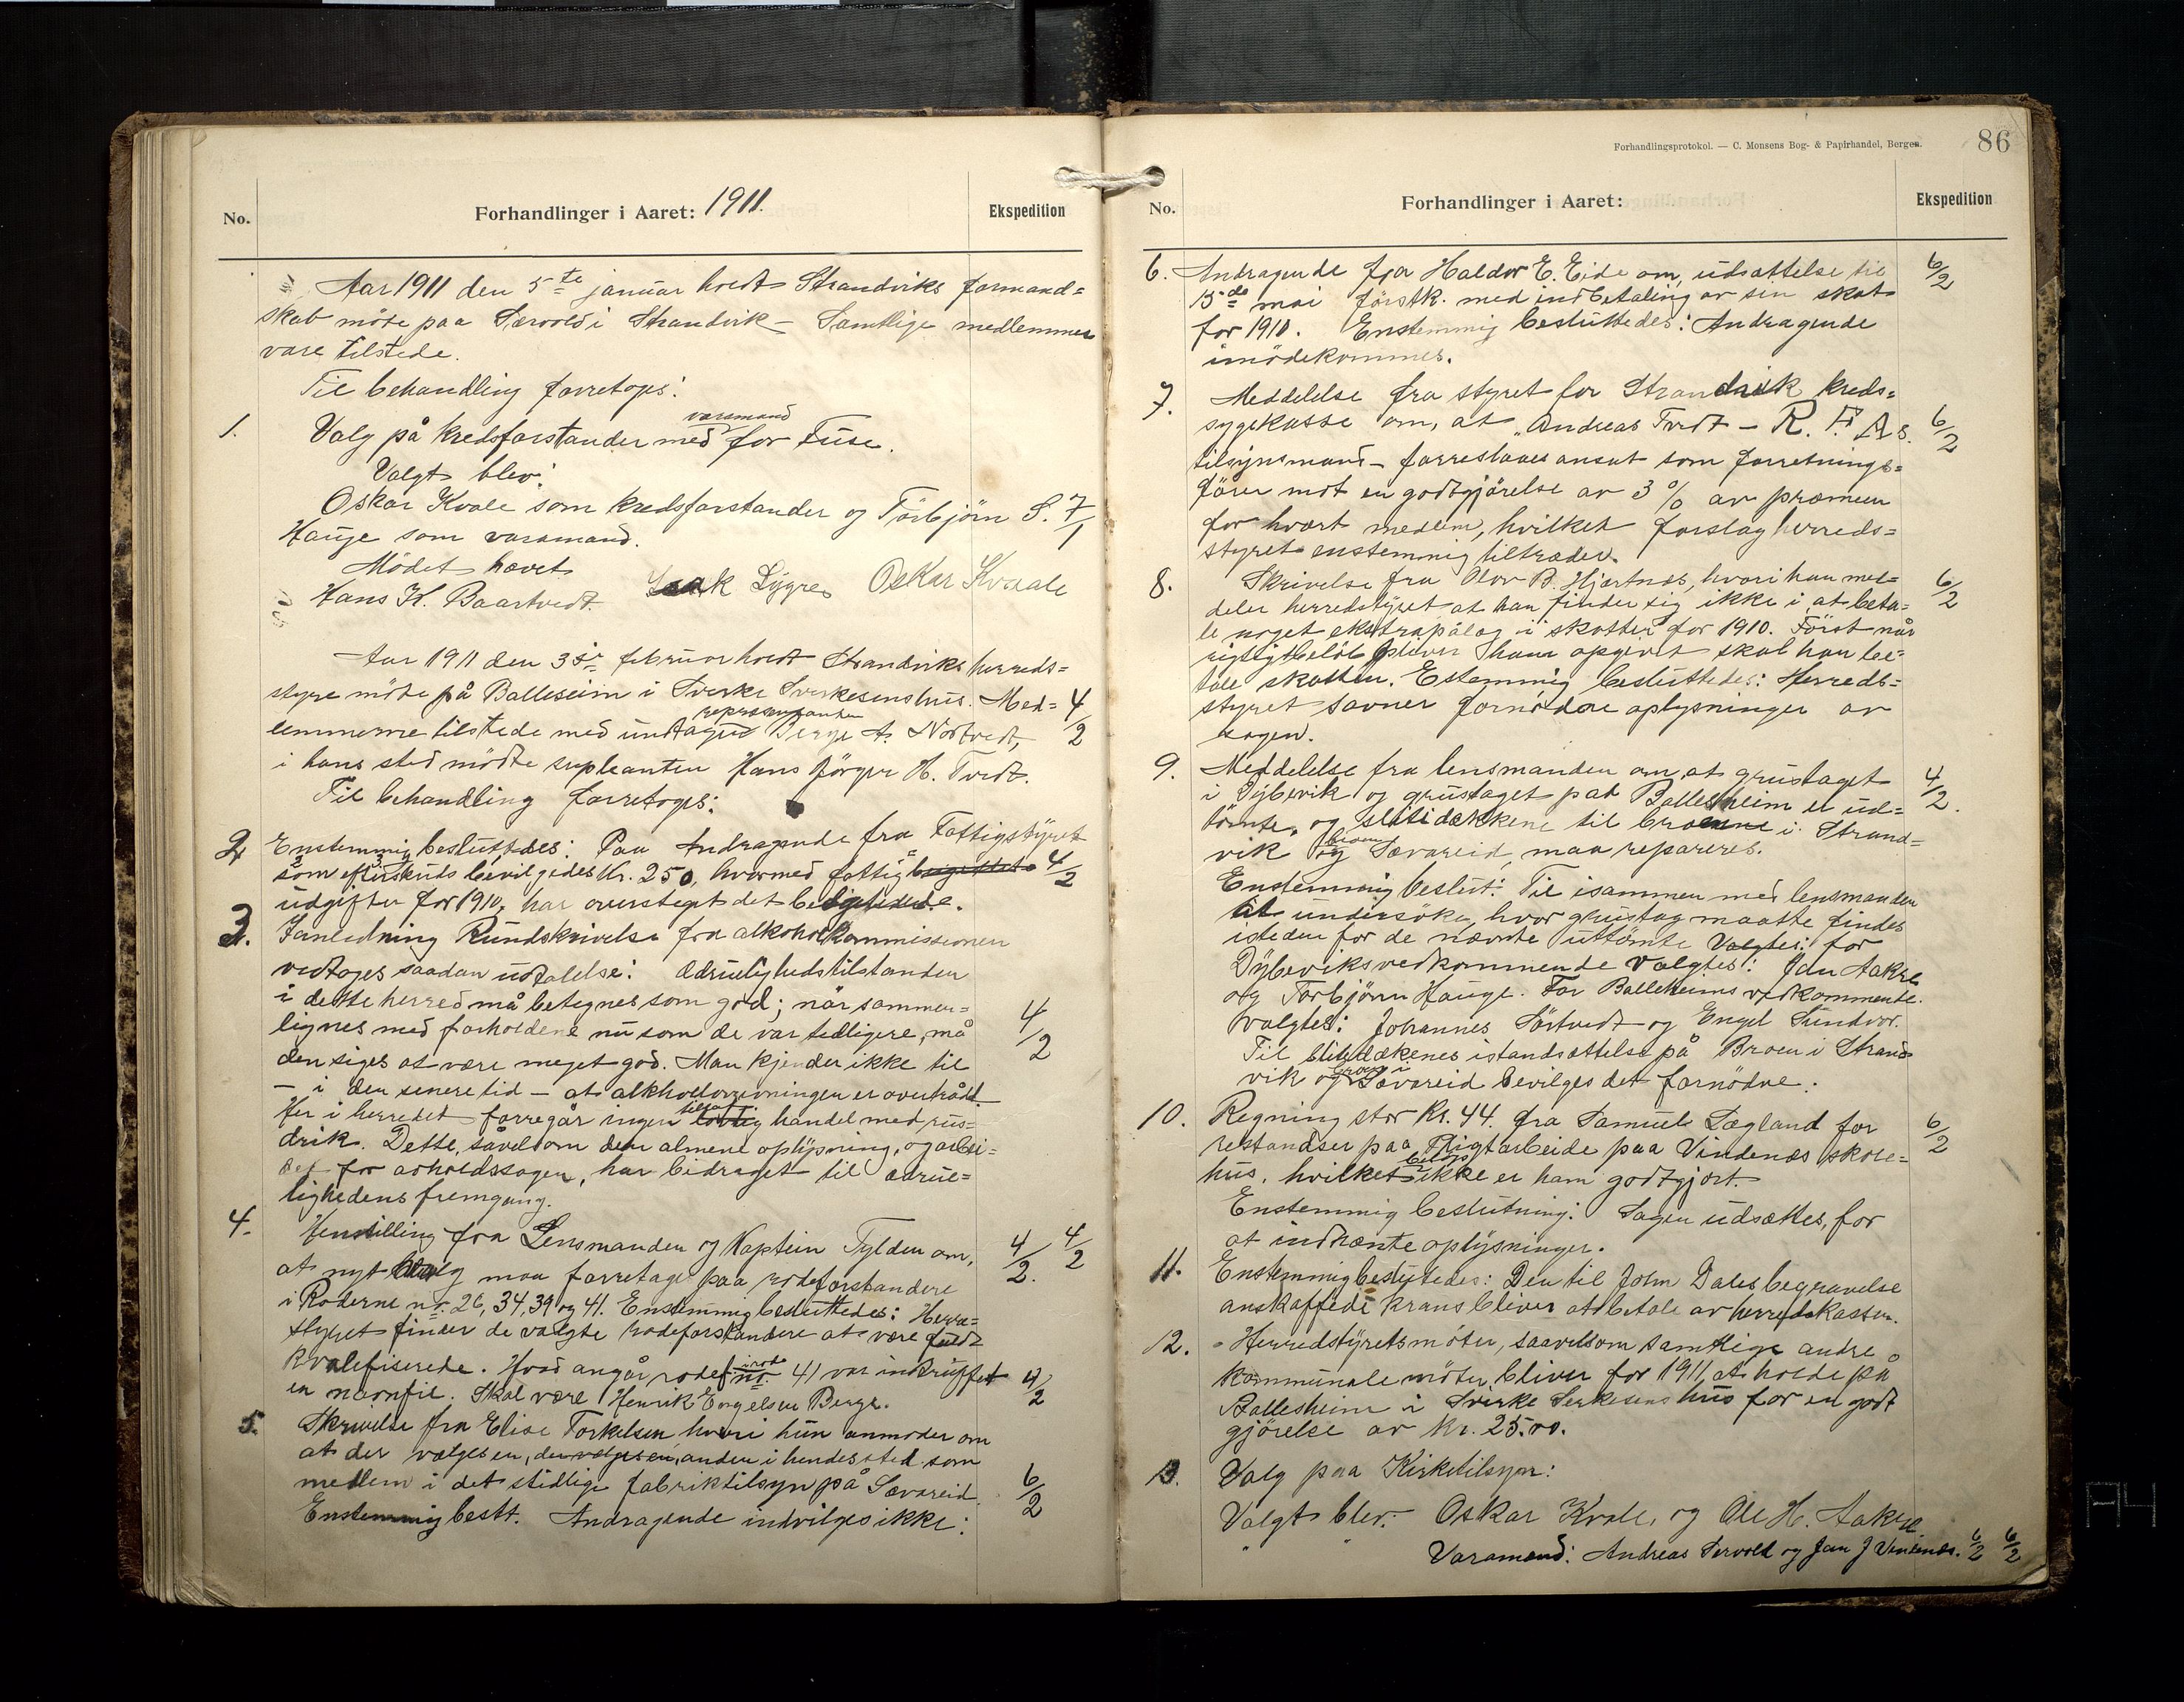 No.
Forhandlinger i Aaret: 1911.
Ekspedition
Aar 1911 den 5te januar holdt Strandviks formand=
skab möte paa Særvold i Strandvik – Samtlige medlemmer
vare tilstede.
Til behandling forretoges:
1. Valg på kredsforstander med varamand for Fuse.
Valgt blev:
Oskar Kvale som kredsforstander og Törbjörn S. 7/1
Hauge som varamand.
Mödet hævet
Hans K. Baartvedt. Isak Lygre Oskar Kvaale
Aar 1911 den 3die februar holdt Strandviks herreds=
styre möte på Balleseim i Sverke Sverkesens hus. Med= 4/2
lemmerne tilstede med undtagen repræsentanten Berge A. Nortvedt,
i hans sted mödte supleanten Hans Jörgen H. Tvedt.
Til behandling forretoges:
2. Enstemmig besluttedes: Paa Andragende fra Fattigstyret
som efterskuds bevilgedes Kr. 250, hvormed fattig 4/2
udgifter for 1910, har oversteget det
3. Ianledning Rundskrivelse fra alkoholkommissionen
vedtoges saadan udtalelse: Ædruelighedstilstanden
i dette herred må betegnes som god; når sammen=
lignes med forholdene nu som de var tidligere, må 4/2
den siges at være meget god. Man kjender ikke til
– i den senere tid – at alkhollovgivningen er overtrådt
Her i herredet forregår ingen lovlig handel med rus=
drik. Dette, såvelsom den almene oplysning, og arbei=
det for avholdssagen, har bidraget til ædrue=
lighedens fremgang.
4. Henstilling fra Lensmanden og Kaptein Tylden om, 4/2 4/2
at nyt valg maa forretages paa rodeforstandere
i Roderne nr. 26, 34, 39 og 41. Enstemmig besluttedes: Herre=
styret finder de valgte rodeforstandere at være fuldt
kvalefiserede. Hvad angår rodef i rode nr. 41 var indtruffet 4/2
en navnfeil. Skal være Henrik Engelsen Berge.
5. Skrivelse fra Elise Torkelsen hvori hun anmoder om
at der vælges en, der vælges en, anden i hendes sted som
medlem i det stedlige fabriktilsyn på Sævareid. 6/2
Enstemmig beslt. Andragende indvilges ikke:
Forhandlingsprotokol. — C. Monsens Bog- & Papirhandel, Bergen.
86
No.
Forhandlinger i Aaret:
Ekspedition
6. Andragende fra Haldor E. Eide om, udsættelse til 6/2
15de mai förstk. med indbetaling av sin skat
for 1910. Enstemmig besluttedes: Andragende
imödekommes.
7. Meddelelse fra styret for Strandvik kreds=
sygekasse om, at Andreas Tvedt – R. F. As. 6/2
tilsynsmand – forreslaaes ansat som forretnings=
förer mot en godtgjörelse av 3 % av præmien
for hvært medlem, hvilket forslag herreds=
styret enstemmig tiltræder.
8. Skrivelse fra Olav B. Hjartnæs, hvori han med= 6/2
deler herredstyret at han finder sig ikke i at beta=
le noget ekstrapålag i skatten for 1910. Först når
rigtigt belöb bliver ham opgivet skal han be=
tale skatten. Estemmig besluttedes: Herreds=
styret savner fornödne oplysninger av
sagen.
9. Meddelelse fra lensmanden om, at grustaget 4/2.
i Dybevik og grustaget paa Balleseim er ud=
tömte, og slitedækkene til broerne i Strand=
vik og broen Sævareid maa repareres.
Enstemmig beslut: Til isammen med lensmanden
at undersöke, hvor grustag maatte findes
isteden for de nævnte uttömte Valgtes: for
Dybeviks vedkommende valgtes: Jan Aakre
og Torbjörn Hauge. For Balleheims vedkommende.
valgtes: Johannes Sörtvedt og Engel Sundvor.
Til slitedækenes istandsættelse på Broen i Strand
vik og broen i Sævareid bevilges det fornödne.
10. Regning stor Kr. 44. fra Samuel Lægland for 6/2
restandser paa Pligtarbeide paa Vindenæs skole=
hus, hvilket belöp ikke er ham godtgjort.
Enstemmig beslutning: Sagen udsættes, for
at indhænte oplysninger.
11. Enstemmig beslutedes: Den til John Dales begravelse
anskaffede krans bliver at betale av herredskassen.
12. Herredstyretsmöter, saavelsom samtlige andre
kommunale möter bliver for 1911, at holde på
Ballesheim i Svirke Serkesens hus for en godt
gjörelse av kr. 25.00.
13. Valg paa Kirketilsyn:
Valgt blev: Oskar Kvale, og Ole H. Aakre
" " Varamænd: Andreas Servold og Jan J Vindenæs. 6/2 6/2